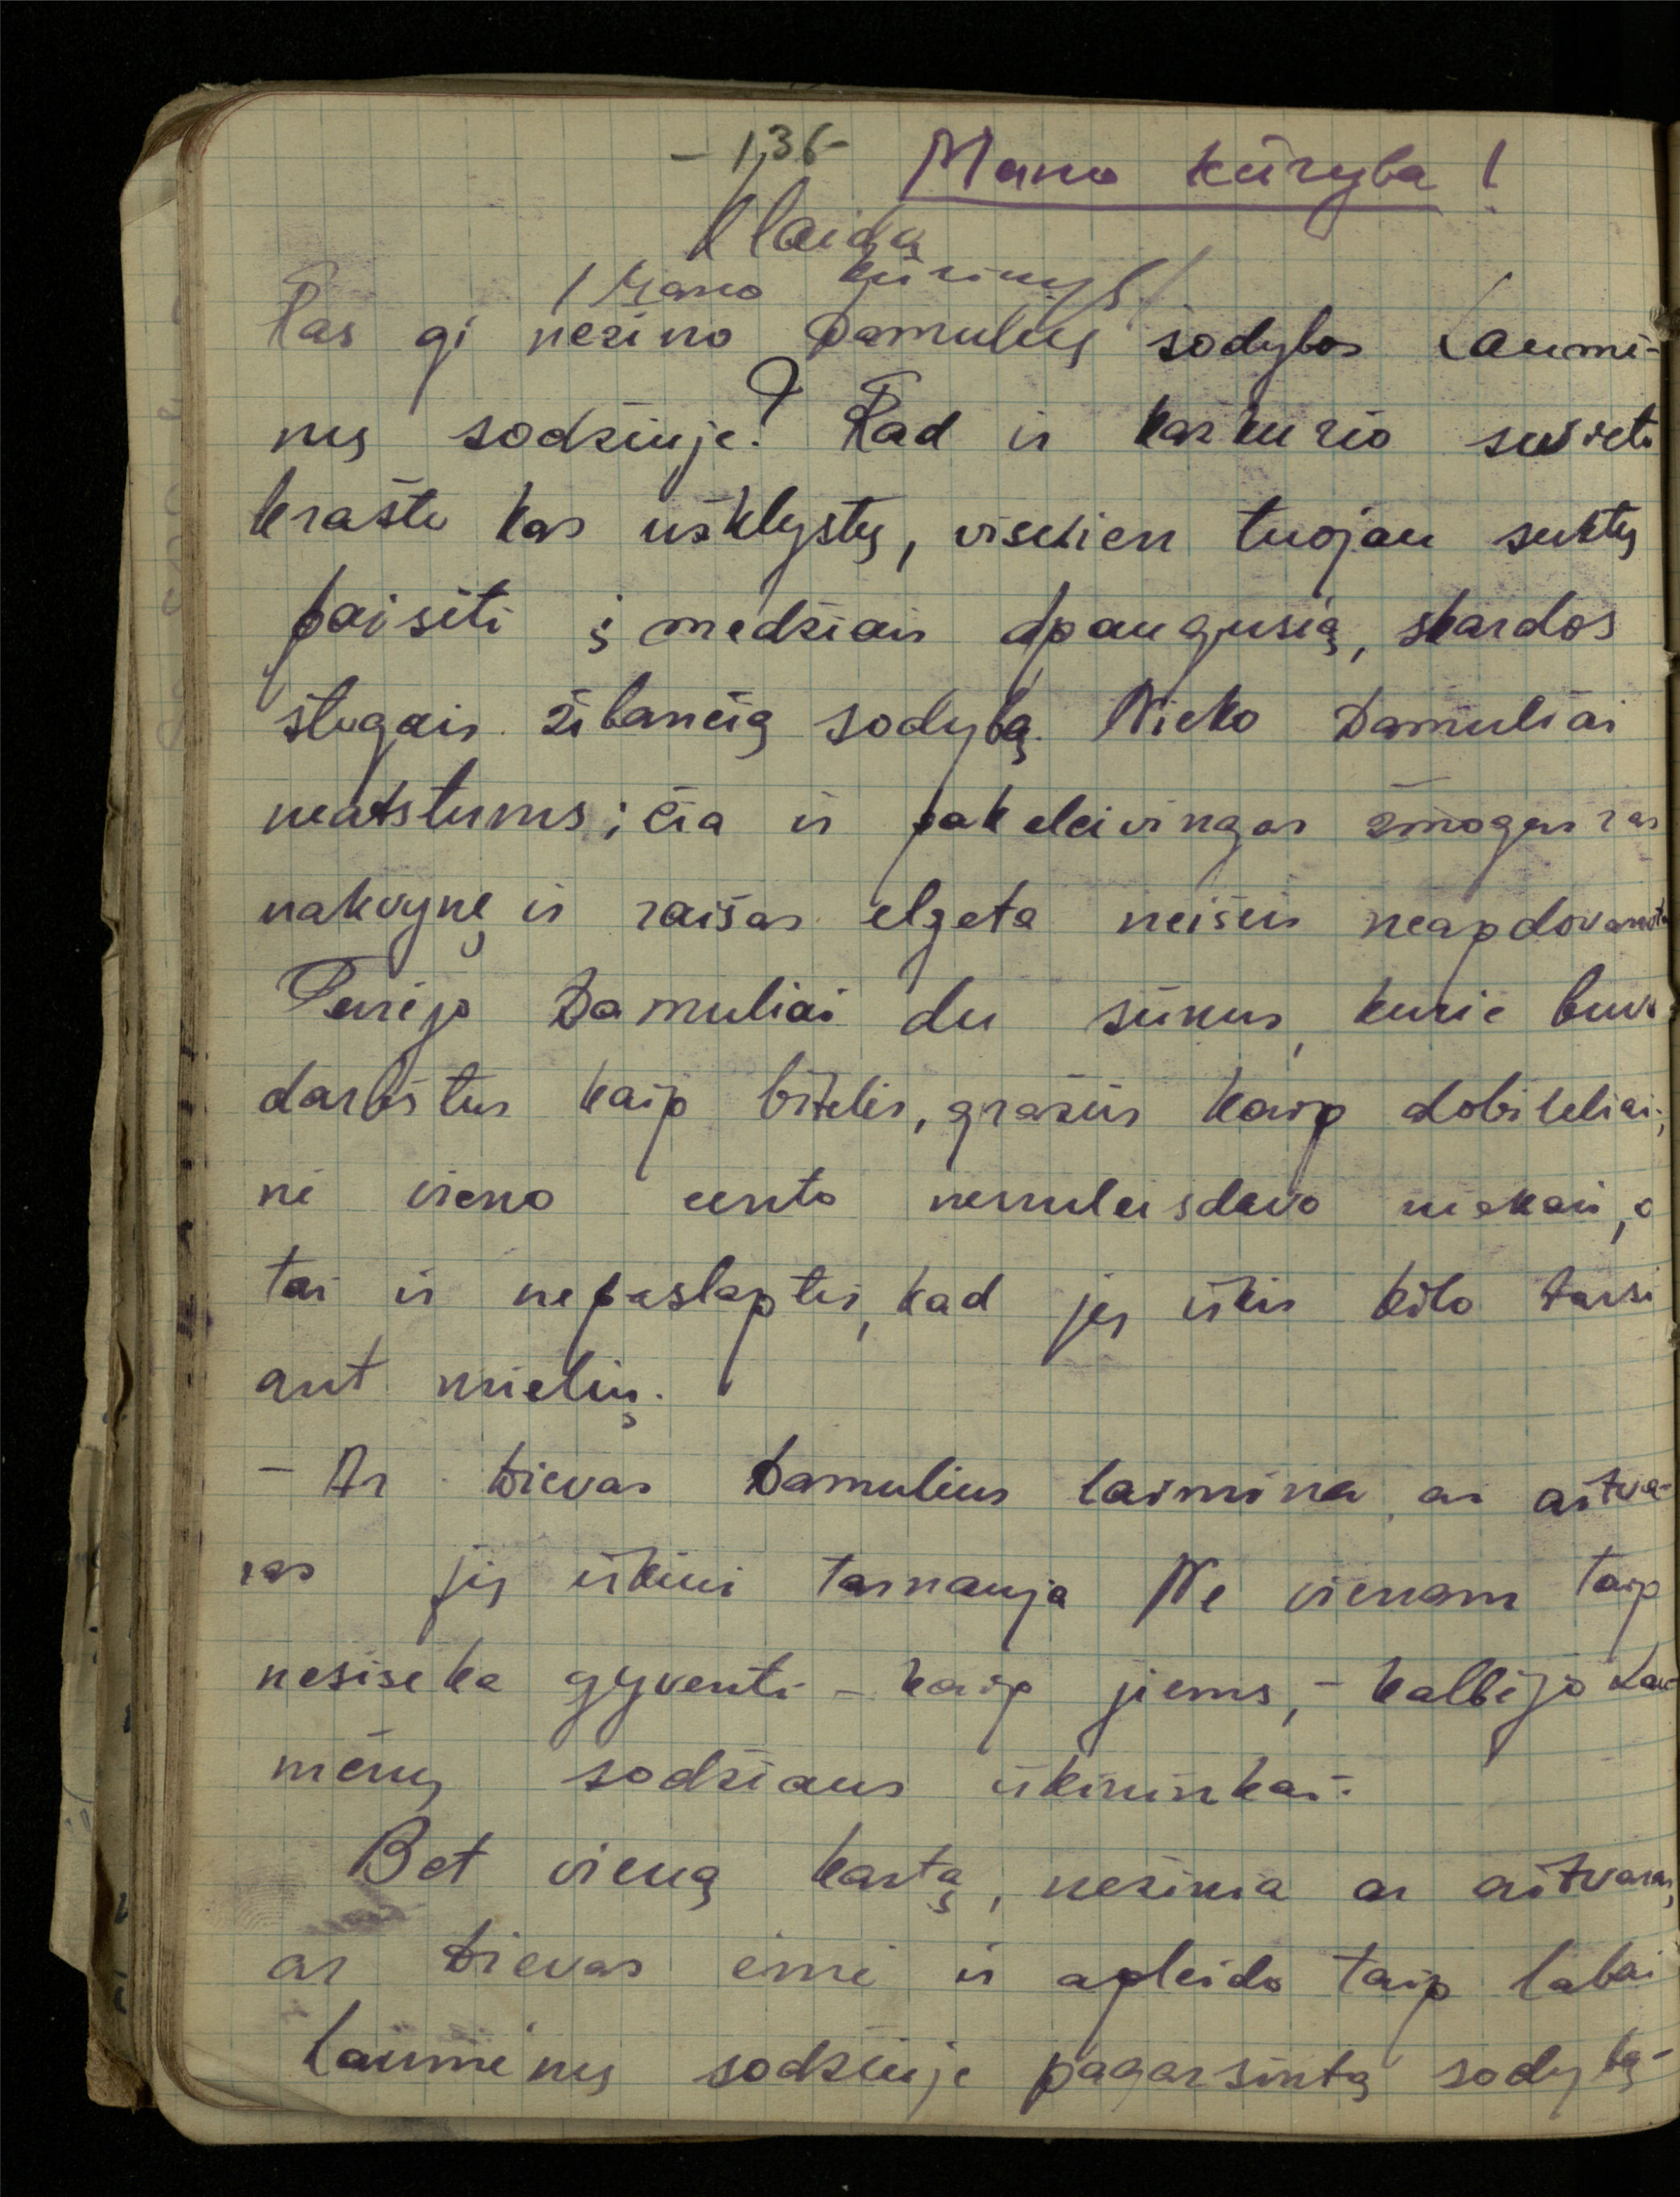 - 136 -
Mano kūryba!
Klaida
/ Mano kūrinys /
Kas gi nežino Damulių sodybos Laumė-
nų sodžiuje? Kad ir kažkurio sviete
krašte kas užklystų, viselien tuojau suktų
pailsėti į medžiais apaugusią, skardos
stogais žibančią sodybą. Nieko Damuliai
neatstums; čia ir pakeleivingas žmogus ras
nakvynę ir raišas elgeta neišeis neapdovanota
Turėjo Damuliai du sūnus, kurie buvo
darbštus kaip bitelės, gražūs kaip dobilėliai;
nė vieno cento nenuleisdavo niekais, o
tai ir nepaslaptis, kad jų ūkis kilo tarsi
ant mielių.
- Ar Dievas Damulius laimina ar aitva-
ras jų ūkiui tarnauja Ne vienam taip
nesiseka gyventi - kaip jiems, - kalbėjo Lau-
mėnų sodžiaus ūkininkai.
Bet vieną kartą, nežinia ar aitvaras,
ar Dievas ėmė ir apleido taip labai
Laumėnų sodžiuje pagarsintą sodybą-